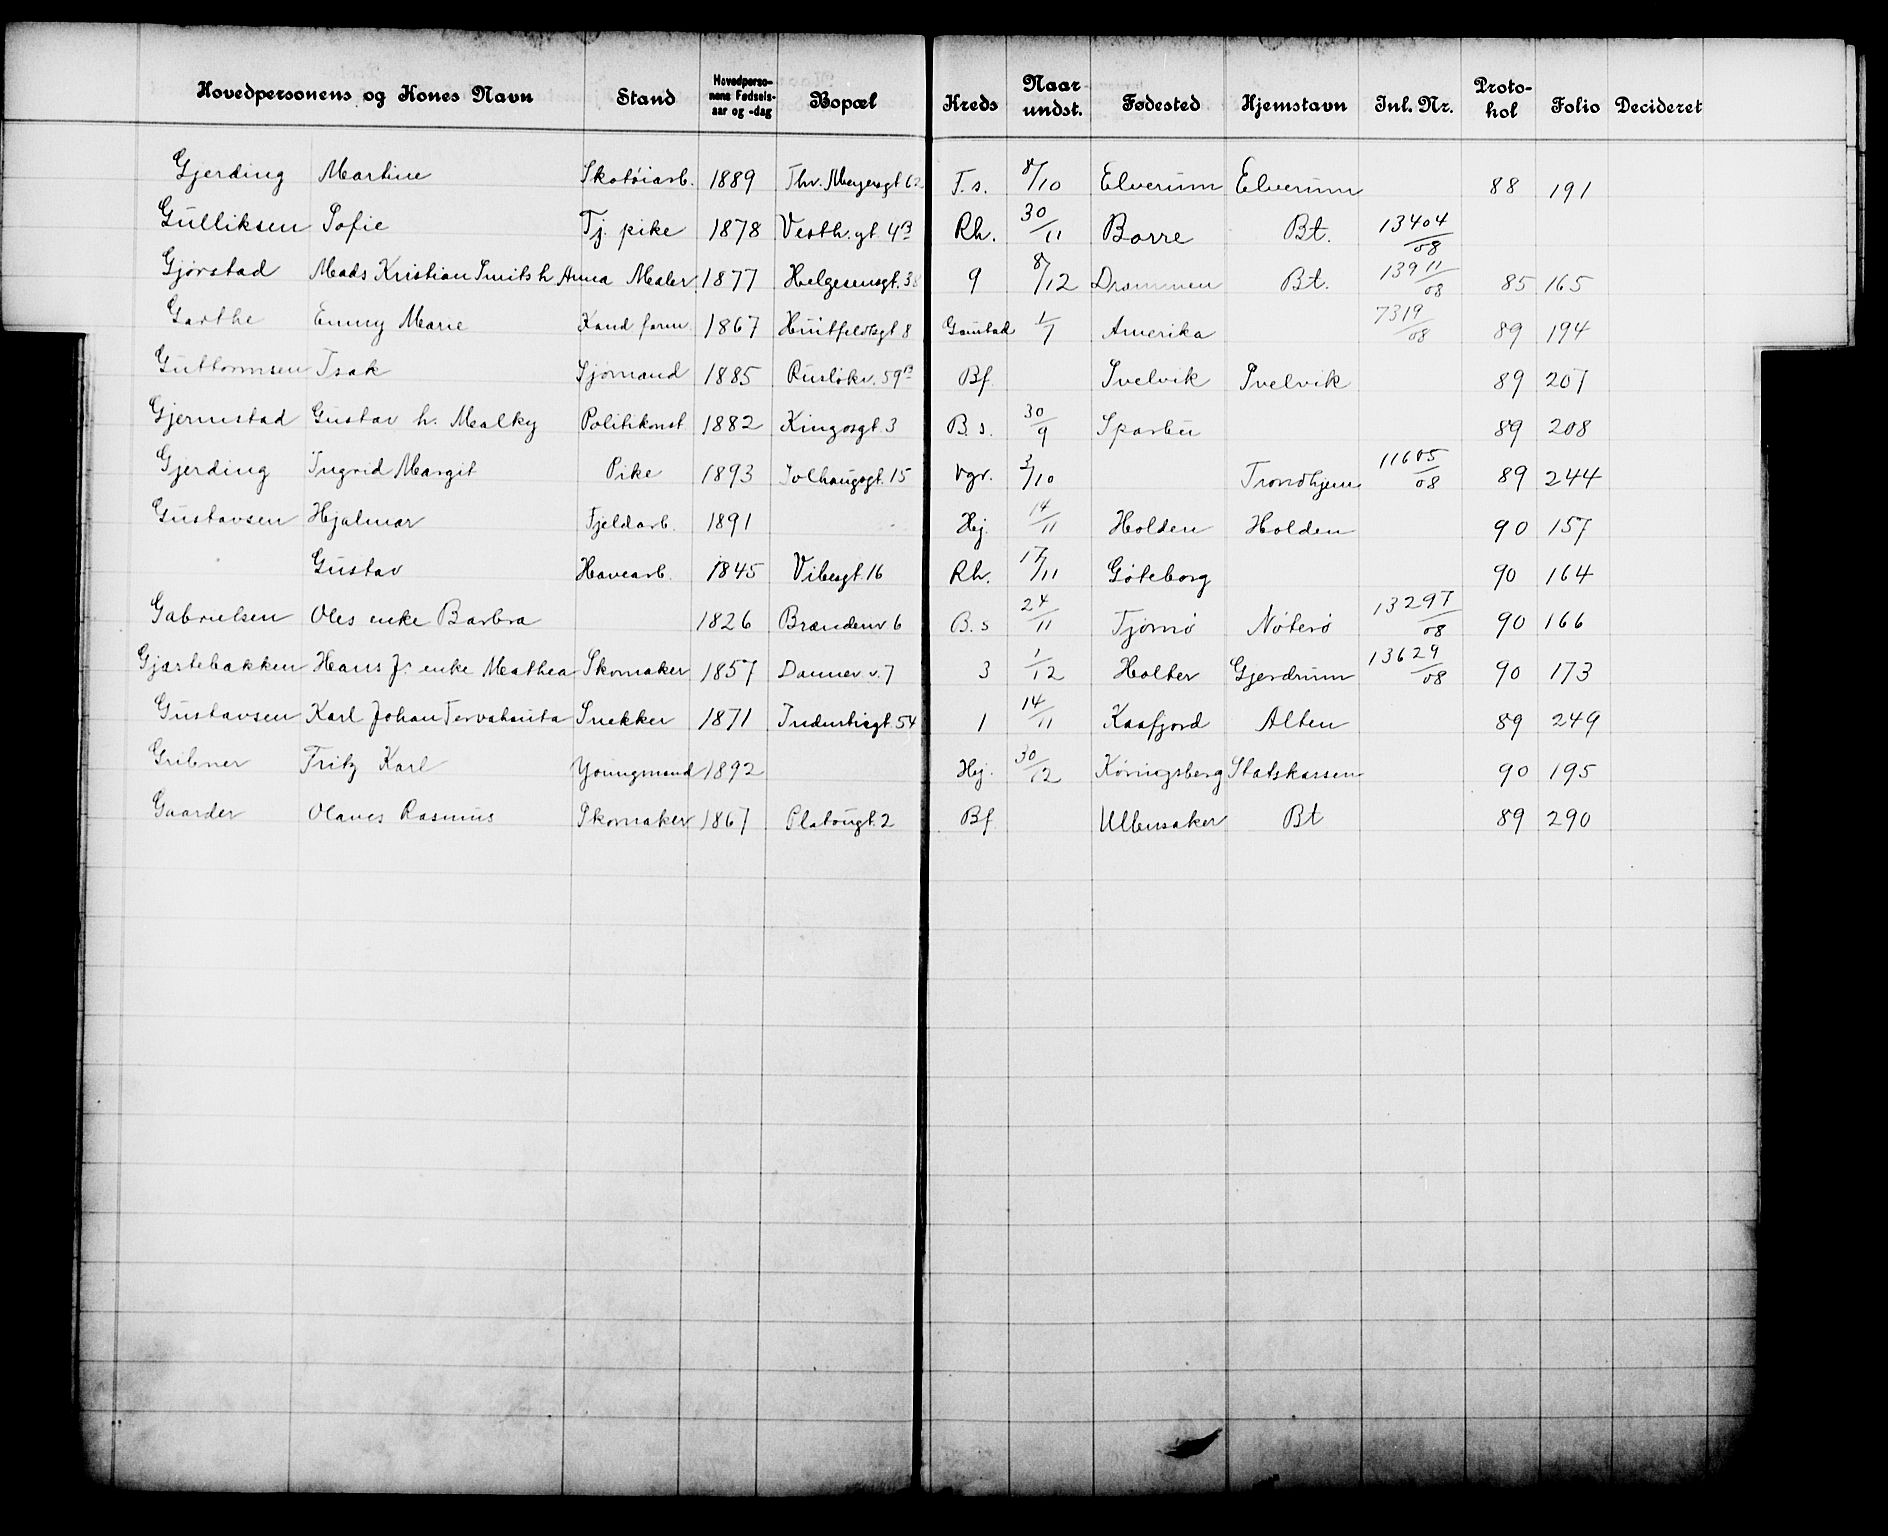 Hovedpersonens og Kones Navn | Stand | Hovedpersonens Fødselsaar og -dag | Bopæl | Kreds | Naar undst. | Fødested | Hjemstavn | Inl. Nr. | Protokol | Folio | Decideret
Gjerding Martine | Skotøiarb. | 1889 | Thv. Meyersgt 62 | T. s. | 8/10 | Elverum | Elverum | | 88 | 191
Gulliksen Sofie | Tj. pike | 1878 | Vesth. gt. 4B | Rh. | 30/11 | Borre | Bt. | 13404/08
Gjørstad Mads Kristian Smits h Anna | Maler | 1877 | Helgesensgt. 38 | 9 | 8/12 | Drammen | Bt. | 13911/08 | 85 | 165
Garthe Emmy Marie | Kand farm | 1867 | Huitfeldtsgt 8 | Gaustad | 1/7 | Amerika | | 7319/08 | 89 | 194
Guttormsen Isak | Sjømand | 1885 | Rusløkv. 59B | Bf. | | Svelvik | Svelvik | | 89 | 207
Gjermstad Gustav h. Malky | Politikonst | 1882 | Kingosgt. 3 | B. s. | 30/9 | Sparbu | | | 89 | 208
Gjerding Ingrid Margit | Pike | 1893 | Tolhaugsgt. 15 | Vgr. | 3/10 | | Trondhjem | 11605/08 | 89 | 244
Gustavsen Hjalmar | Fjeldarb. | 1891 | | Hej. | 14/11 | Holden | Holden | | 90 | 157
Gustav | Havearb. | 1845 | Vibesgt. 16 | Rh. | 17/11 | Gøteborg | | | 90 | 164
Gabrielsen Oles enke Barbra | | 1826 | Brændenv 6 | B. s | 24/11 | Tjømø | Nøterø | 13297/08 | 90 | 166
Gjæstebakken Hans Jr enke Mathea | Skomaker | 1857 | Dannev. v. 7 | 3 | 1/12 | Holter | Gjerdrum | 13629/08 | 90 | 173
Gustavsen Karl Johan | Snekker | 1871 | Industrigt. 54 | 1 | 14/11 | Kaafjord | Alten | | 89 | 249
Gribner Fritz Karl | Youngmand | 1892 | | Hej. | 30/12 | Køningsberg | Statskassen | | 90 | 195
Gaarder Olaves Rasmus | Skomaker | 1867 | Platougt. 2 | Bf | | Ullensaker | Bt | | 89 | 290